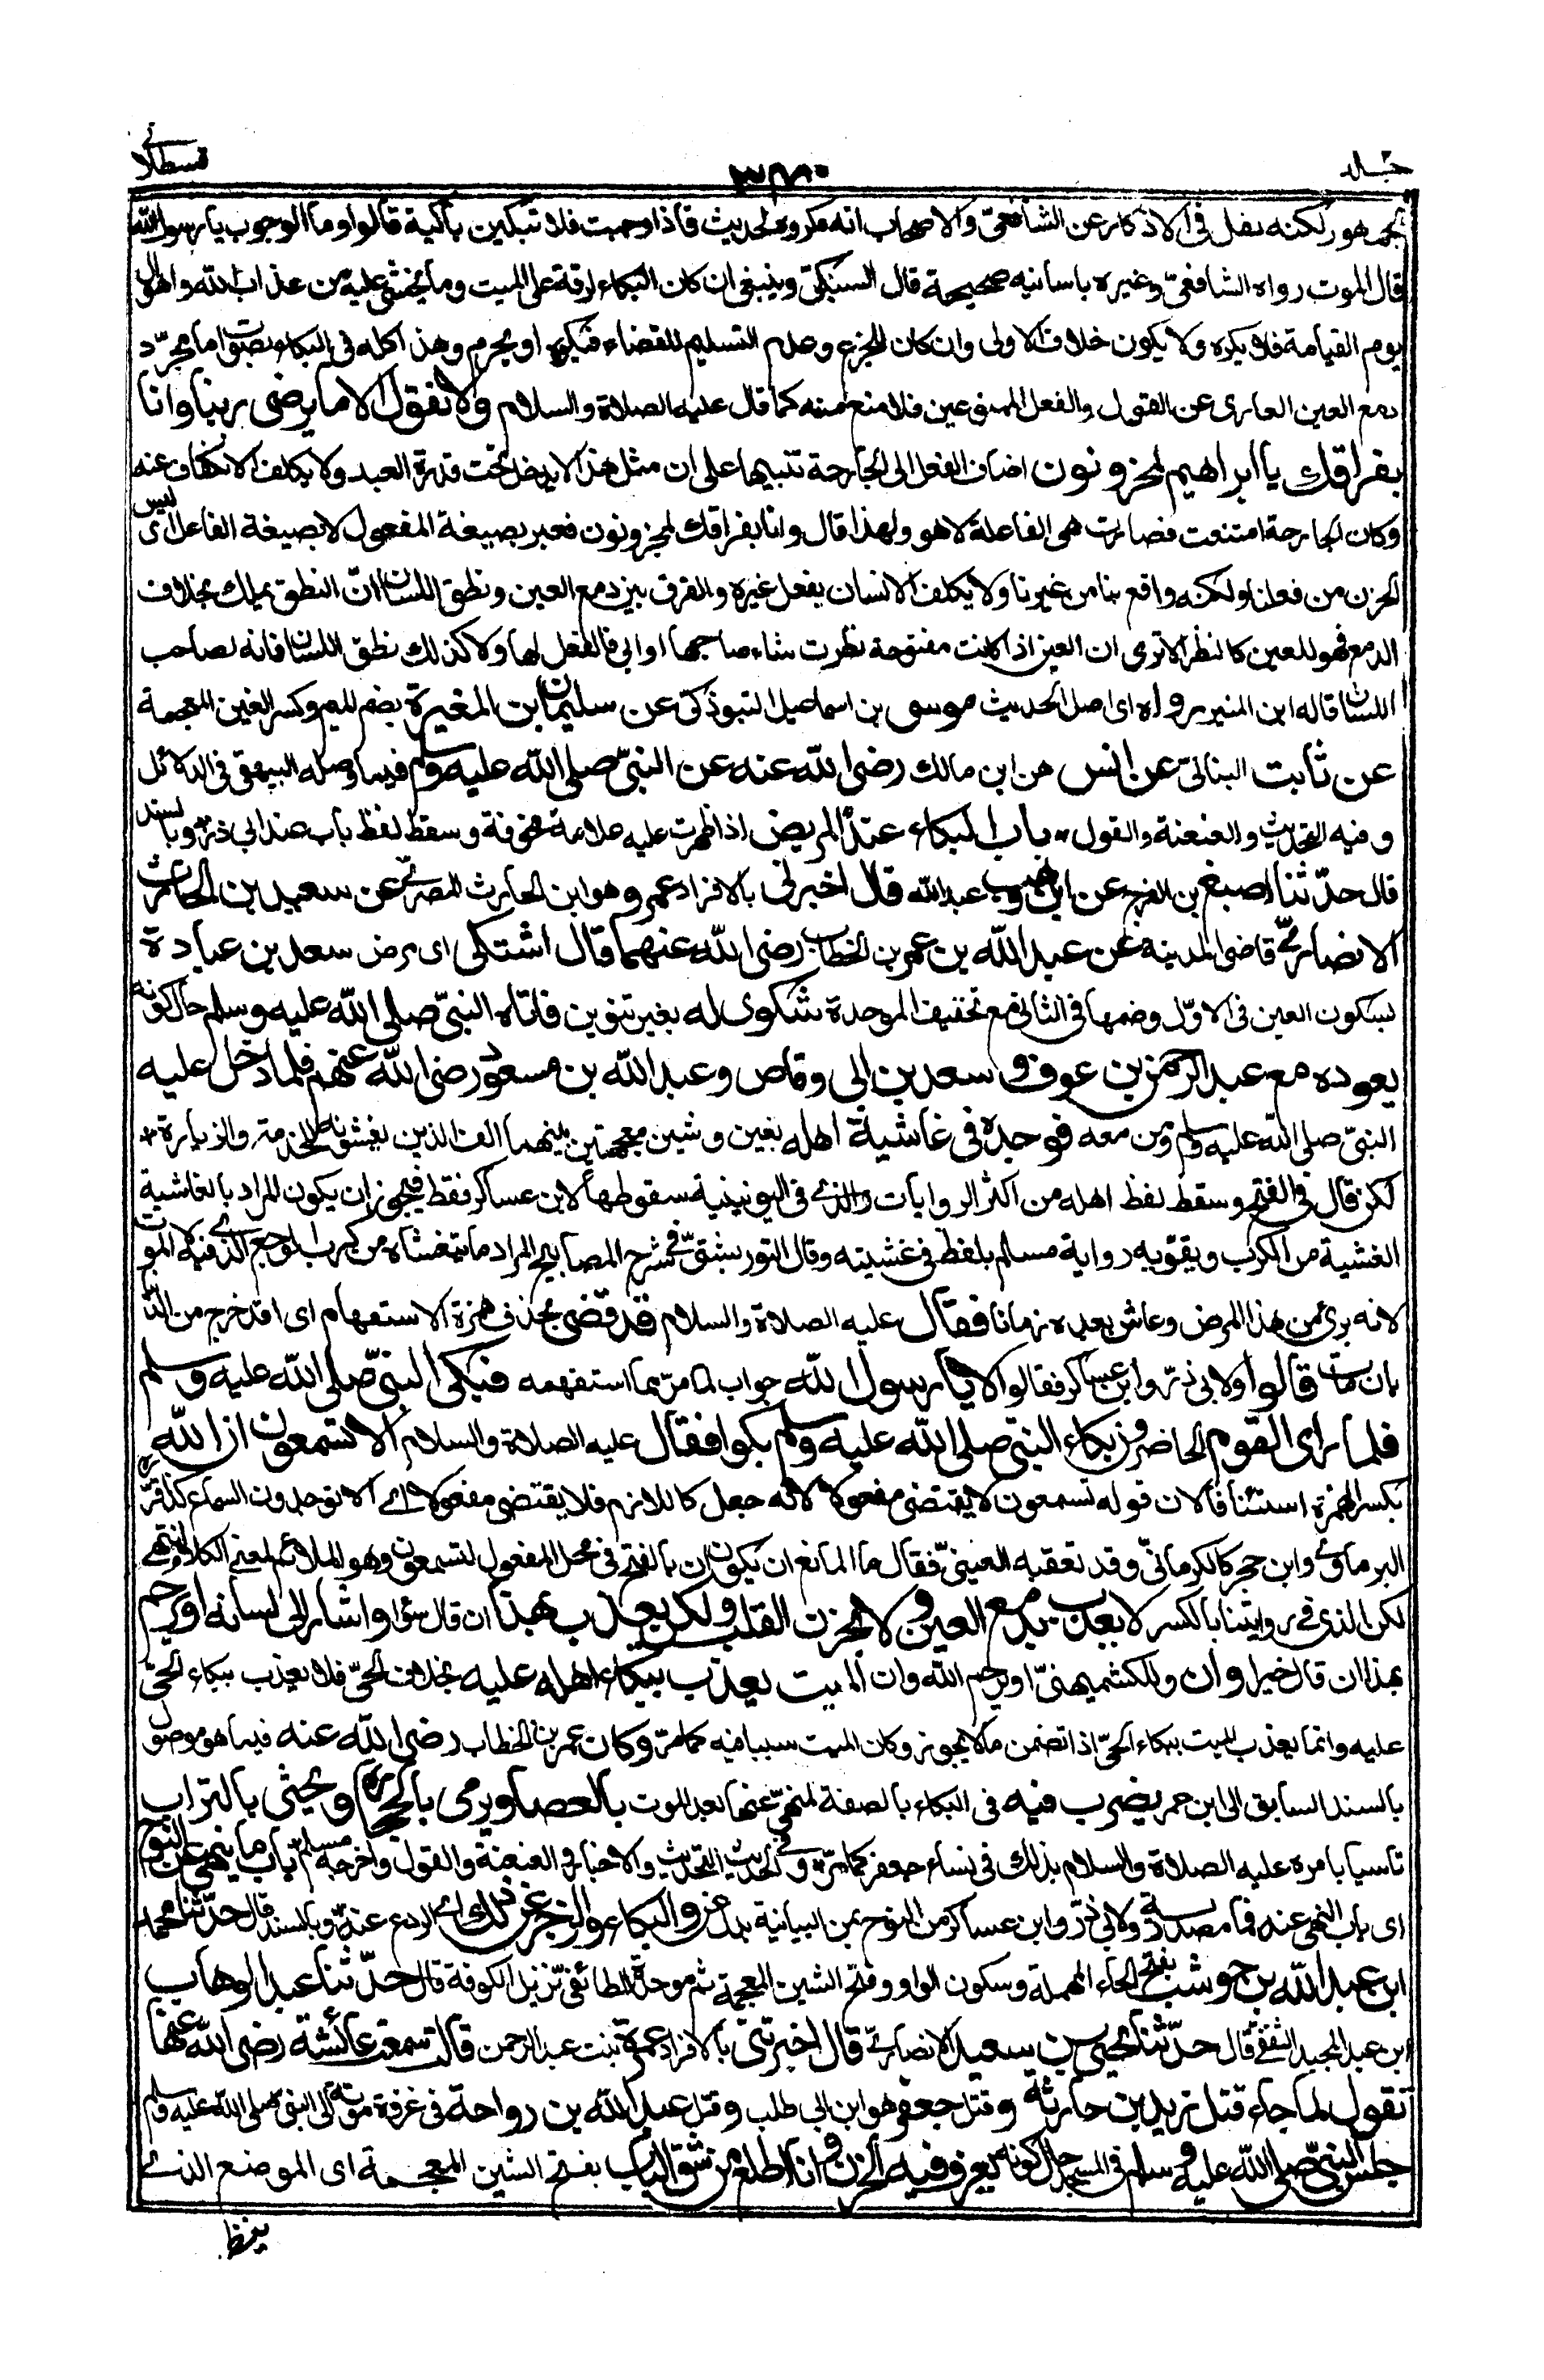 جلد
٣٨٠
قسطلانے
الجمهور لكنه نقل فى الاذكار عن الشافعىّ والاصحاب انه مكروه لحديث فاذا وجبت فلا تبكين باكية قالوا وما الوجوب يا رسول الله
قال الموت رواه الشافعىّ وغيره باسانيد صحيحة قال السبكىّ وينبغى ان كان البكاء لرقة على الميت وما يخشى عليه من عذاب الله واهوال
يوم القيامة فلا يكره ولا يكون خلاف الاولى وان كان للجزع وعدم التسليم للقضاء فيكره او يحرم وهذا كله فى البكاء بصوت اما مجرّد
دمع العين العارى عن القول والفعل الممنوعين فلا منع منه كما قال عليه الصلاة والسلام ولا نقول الا ما يرضى ربنا وانا
بفراقك يا ابراهيم لمحزونون اضاف الفعل الى الجارحة تنبيها على ان مثل هذا لا يدخل تحت قدرة العبد ولا يكلف الانكفاف عنه
وكان الجارحة امتنعت فصارت هى الفاعلة لا هو ولهذا قال وانا بفراقك لمحزونون فعبر بصيغة المفعول لا بصيغة الفاعل اى ليس
الحزن من فعلنا ولكنه واقع بنا من غيرنا ولا يكلف الانسان بفعل غيره والفرق بين دمع العين ونطق اللسان انّ النطق يملك بخلاف
الدمع فهو للعين كالنظر الا ترى ان العين اذا كانت مفتوحة نظرت شاء صاحبها او ابى فالفعل لها ولا كذلك نطق اللسان فانه لصاحب
اللسان قاله ابن المنير رواه اى اصل الحديث موسى بن اسماعيل التبوذكىّ عن سليمان بن المغيرة بضم الميم وكسر الغين المعجمة
عن ثابت البنانىّ عن انس هو ابن مالك رضى الله عنه عن النبىّ صلى الله عليه وسلم فيما وصله البيهقى فى الدلائل
وفيه التحديث والعنعنة والقول * باب البكاء عند المريض اذا ظهرت عليه علامة مخوفة وسقط لفظ باب عند ابى ذرّ * وبالسند
قال حدّثنا اصبغ بن الفرج عن ابن وهب عبد الله قال اخبرنى بالافراد عمرو هو ابن الحارث المصرىّ عن سعيد بن الحارث
الانصارىّ قاضى المدينة عن عبد الله بن عمر بن الخطاب رضى الله عنهما قال اشتكى اى مرض سعد بن عبادة
بسكون العين فى الاوّل وضمها فى الثانى مع تخفيف الموحدة شكوى له بغير تنوين فاتاه النبىّ صلى الله عليه وسلم حال كونه
يعوده مع عبد الرحمن بن عوف وسعد بن ابى وقاص وعبد الله بن مسعود رضى الله عنهم فلما دخل عليه
النبىّ صلى الله عليه وسلم ومن معه فوجده فى غاشية اهله بغين وشين معجمتين بينهما الف الذين يغشونه للخدمة والزيارة *
لكن قال فى الفتح وسقط لفظ اهله من اكثر الروايات والذى فى اليونينية سقوطها لابن عساكر فقط فيجوز ان يكون المراد بالغاشية
الغشية من الكرب ويقوّيه رواية مسلم بلفظ فى غشيته وقال التوربشتىّ فى شرح المصابيح المراد ما يتغشاه من كرب الوجع الذى فيه لا الموت
لانه برئ من هذا المرض وعاش بعده زمانا فقال عليه الصلاة والسلام قد قضى بحذف همزة الاستفهام اى اقد خرج من الدنيا
بان مات قالوا ولابى ذرّ وابن عساكر فقالوا لا يا رسول الله جواب لما مرّ مما استفهمه فبكى النبىّ صلى الله عليه وسلم
فلما راى القوم الحاضرون بكاء النبىّ صلى الله عليه وسلم بكوا فقال عليه الصلاة والسلام الا تسمعون ان الله
بكسر الهمزة استئنافا لان قوله تسمعون لا يقتضى مفعولا لانه جعل كاللازم فلا يقتضى مفعولا اى الا توجدون السماع كذا قرّره
البرماوىّ وابن حجر كالكرمانىّ وقد تعقبه العينىّ فقال ما المانع ان يكون ان بالفتح فى محل المفعول لتسمعون وهو الملائم لمعنى الكلام انتهى
لكن الذى فى روايتنا بالكسر لا يعذب بدمع العين ولا بحزن القلب ولكن يعذب بهذا ان قال سوأ واشار الى لسانه او يرحم
بهذا ان قال خيرا وان وللكشميهنىّ او يرحم الله وان الميت يعذب ببكاء اهله عليه بخلاف الحىّ فلا يعذب ببكاء الحىّ
عليه وانما يعذب الميت ببكاء الحىّ اذا تضمن ما لا يجوز وكان الميت سببا فيه كما مرّ وكان عمر بن الخطاب رضى الله عنه فيما هو موصول
بالسند السابق الى ابن عمر يضرب فيه فى البكاء بالصفة المنهىّ عنها بعد الموت بالعصا ويرمى بالحجارة ويحثى بالتراب
تاسيا بامره عليه الصلاة والسلام بذلك فى نساء جعفر كما مرّ * وفى الحديث التحديث والاخبار والعنعنة والقول واخرجه مسلم * باب ما ينهى عن النوح
اى باب النهى عنه فما مصدرية ولابى ذرّ وابن عساكر من النوح بمن البيانية بدل عن والبكاء والزجر عن ذلك اى الردع عنه * وبالسند قال حدّثنا محمد
ابن عبد الله بن حوشب بفتح الحاء المهملة وسكون الواو وفتح الشين المعجمة ثم موحدة الطائفىّ نزيل الكوفة قال حدّثنا عبد الوهاب
ابن عبد المجيد الثقفىّ قال حدّثنا يحيى بن سعيد الانصارىّ قال اخبرتنى بالافراد عمرة بنت عبد الرحمن قالت سمعت عائشة رضى الله عنها
تقول لما جاء قتل زيد بن حارثة وقتل جعفر هو ابن ابى طالب وقتل عبد الله بن رواحة فى غزوة موتة الى النبىّ صلى الله عليه وسلم
جلس النبىّ صلى الله عليه وسلم فى المسجد حال كونه يعرف فيه الحزن وانا اطلع من شق الباب بفتح الشين المعجمة اى الموضع الذى
ينظر